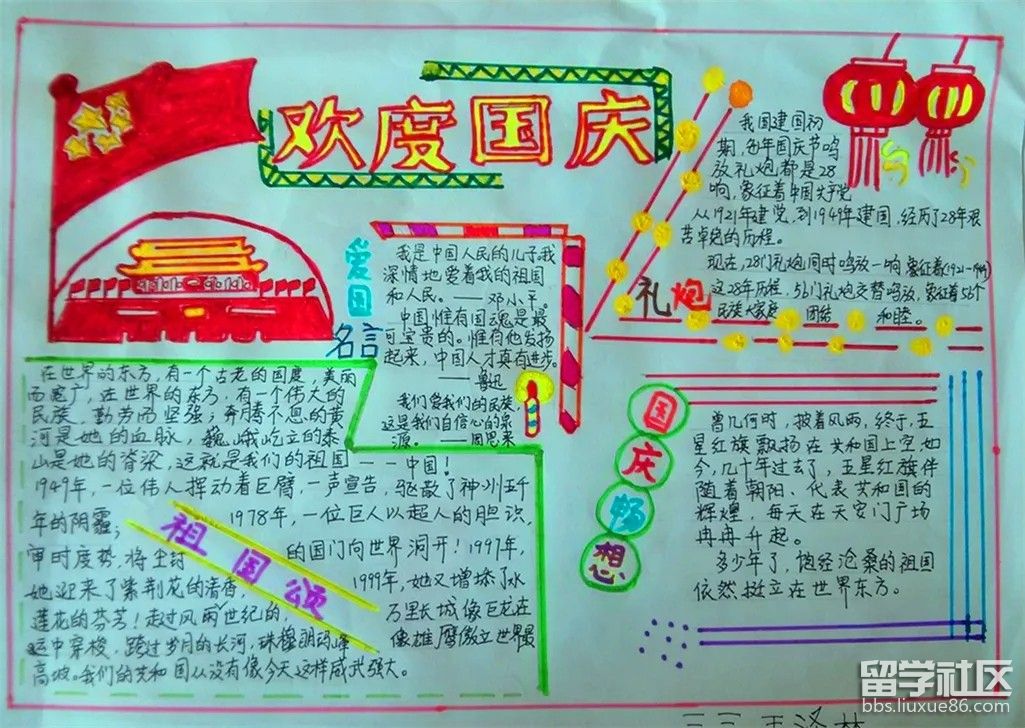 欢度国庆
我国建国初
期,每年国庆节鸣
放礼炮都是28
响,象征着中国共产党
从1921年建党,到1949年建国,经历了28年艰
苦卓绝的历程。
现在,28门礼炮同时鸣放一响,象征着(1921-1949)
这28年历程,56门礼炮交替鸣放,象征着56个
民族大家庭 团结 和睦。
礼炮
爱国
名言
我是中国人民的儿子,我
深情地爱着我的祖国
和人民。——邓小平。
中国惟有国魂是最
可宝贵的。惟有他发扬
起来,中国人才真有进步。
——鲁迅
我们爱我们的民族,
这是我们自信心的泉
源。——周恩来
在世界的东方,有一个古老的国度,美丽
而宽广,在世界的东方,有一个伟大的
民族,勤劳而坚强;奔腾不息的黄
河是她的血脉,巍峨屹立的泰
山是她的脊梁,这就是我们的祖国——中国!
1949年,一位伟人挥动着巨臂,一声宣告,驱散了神州五千
年的阴霾; 1978年,一位巨人以超人的胆识,
审时度势,将尘封 的国门向世界洞开!1997年,
她迎来了紫荆花的清香, 1999年,她又增添了水
莲花的芬芳!走过风雨世纪的, 万里长城像巨龙在
运中穿梭,跨过岁月的长河,珠穆朗玛峰 像雄鹰傲立世界最
高坡。我们的共和国从没有像今天这样威武强大。
祖国颂
国庆畅想
曾几何时,披着风雨,终于,五
星红旗飘扬在共和国上空,如
今,几十年过去了,五星红旗伴
随着朝阳、代表共和国的
辉煌,每天在天安门广场
冉冉升起。
多少年了,饱经沧桑的祖国
依然挺立在世界东方。
留学社区
bbs.liuxue86.com